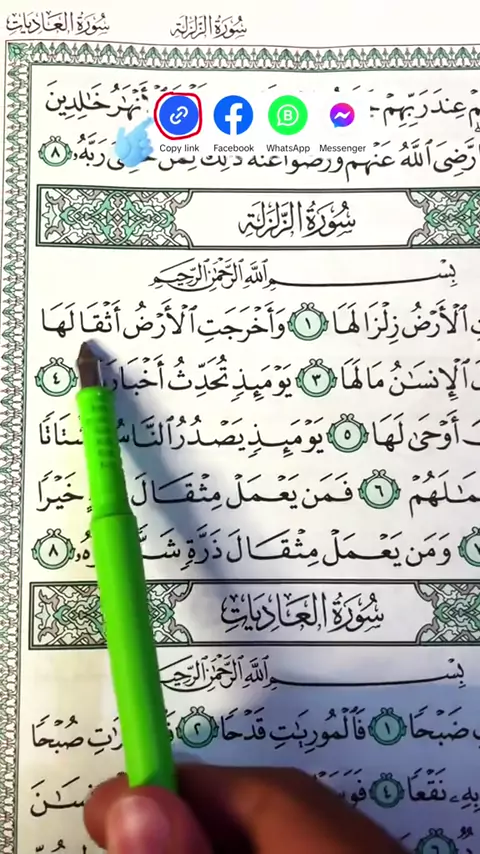 سُورَةُ الزَّلْزَلَةِ
سُورَةُ العَادِيَاتِ
عِندَ رَبِّهِمْ
خَٰلِدِينَ
Copy link
Facebook
WhatsApp
Messenger
رَّضِىَ ٱللَّهُ عَنْهُمْ وَرَضُوا۟ عَنْهُ ذَٰلِكَ لِمَنْ خَشِىَ رَبَّهُۥ ٨
سُورَةُ الزَّلْزَلَةِ
بِسْمِ ٱللَّهِ ٱلرَّحْمَٰنِ ٱلرَّحِيمِ
ٱلْأَرْضُ زِلْزَالَهَا ١ وَأَخْرَجَتِ ٱلْأَرْضُ أَثْقَالَهَا
ٱلْإِنسَٰنُ مَا لَهَا ٣ يَوْمَئِذٍ تُحَدِّثُ ٤
أَوْحَىٰ لَهَا ٥ يَوْمَئِذٍ يَصْدُرُ ٱلنَّاسُ أَشْتَاتًا
٦ فَمَن يَعْمَلْ مِثْقَالَ خَيْرًا
٧ وَمَن يَعْمَلْ مِثْقَالَ ذَرَّةٍ ٨
سُورَةُ العَادِيَاتِ
بِسْمِ ٱللَّهِ ٱلرَّحْمَٰنِ ٱلرَّحِيمِ
ضَبْحًا ١ فَٱلْمُورِيَٰتِ قَدْحًا ٢ صُبْحًا
بِهِۦ نَقْعًا ٤